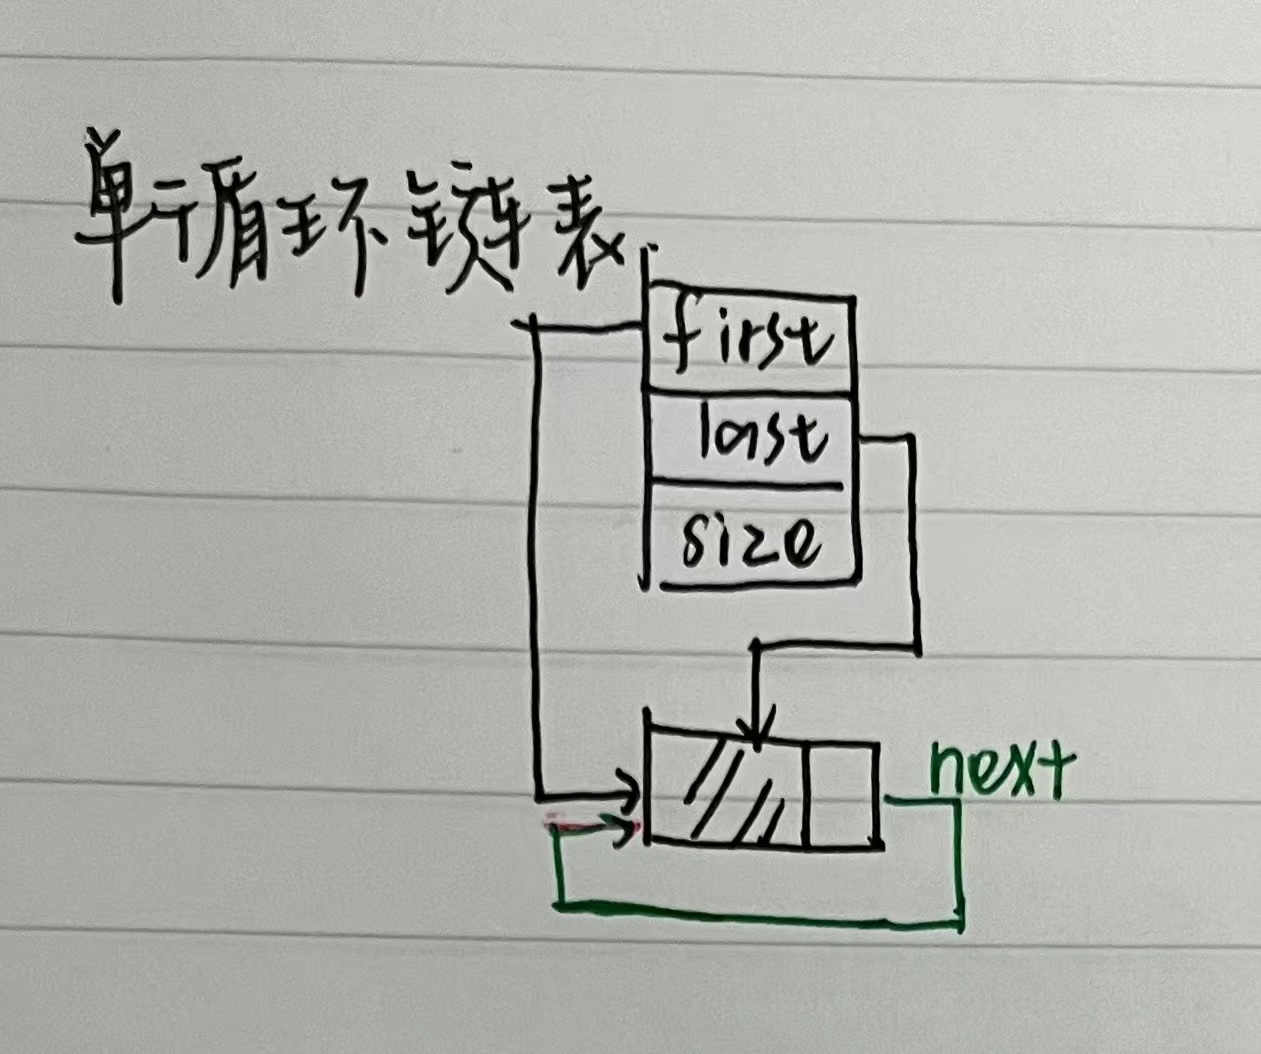 单循环链表
first
last
size
next